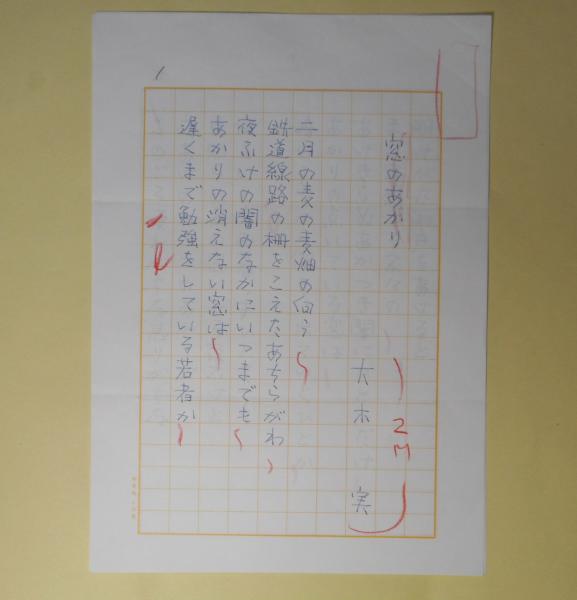 1
窓のあかり
大木 実
2M
二月の麦の麦畑の向う
鉄道線路の柵をこえたあちらがわ
夜ふけの闇のなかにいつまでも
あかりの消えない窓は
遅くまで勉強をしている若者か